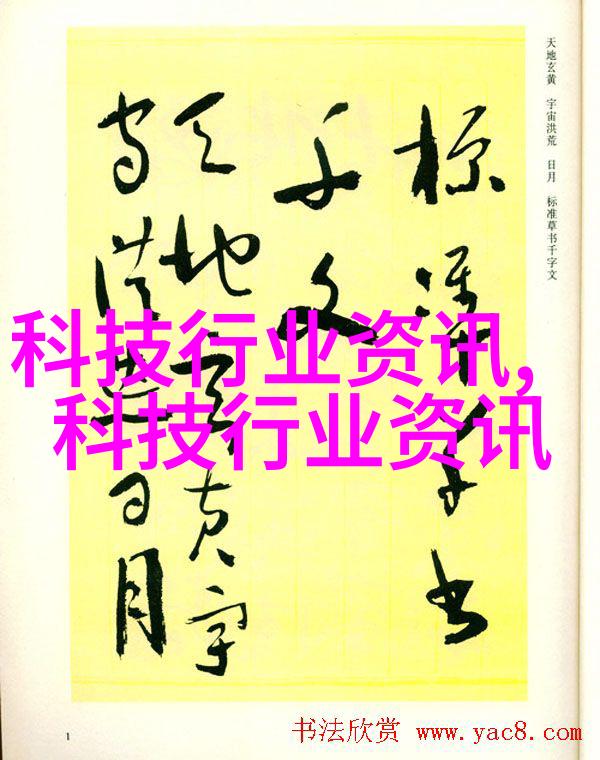 天地玄黄 宇宙洪荒 日月 标准草书千字文
標準草書
千文
天地玄黄宇
宙洪荒日月
科技行业资讯,
科技行业资讯
1
书法欣赏 www.yac8.com